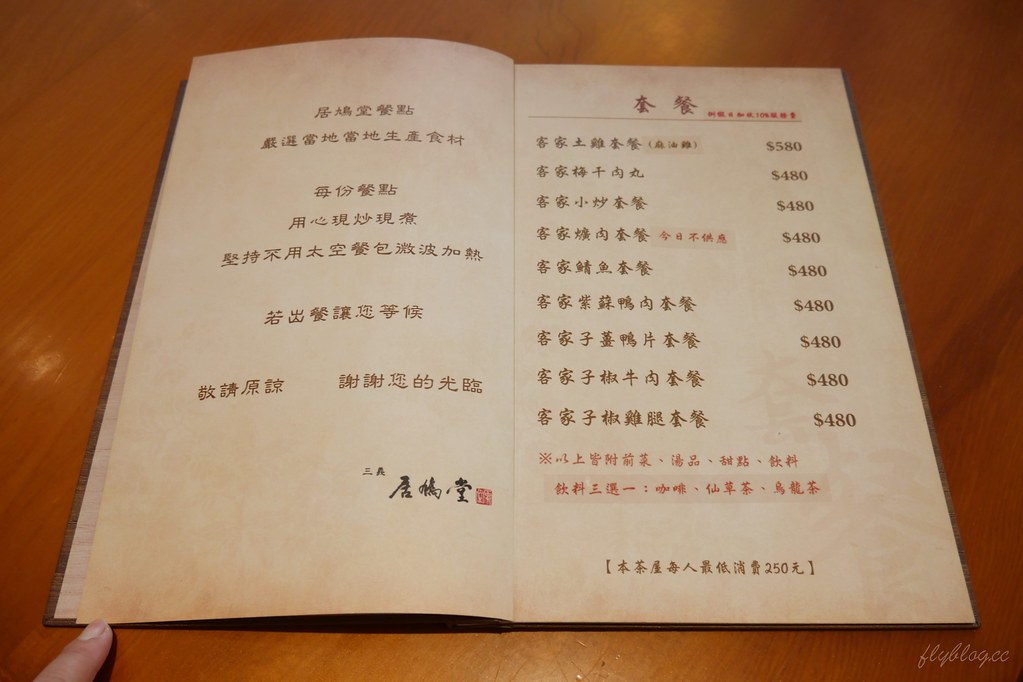 居鳩堂餐點
嚴選當地當地生產食材
每份餐點
用心現炒現煮
堅持不用太空餐包微波加熱
若出餐讓您等候
敬請原諒 謝謝您的光臨
三義
居鳩堂
套餐 例假日加收10%服務費
客家土雞套餐(麻油雞) $580
客家梅干肉丸 $480
客家小炒套餐 $480
客家爌肉套餐 今日不供應 $480
客家鯖魚套餐 $480
客家紫蘇鴨肉套餐 $480
客家子薑鴨片套餐 $480
客家子椒牛肉套餐 $480
客家子椒雞腿套餐 $480
※以上皆附前菜、湯品、甜點、飲料
飲料三選一：咖啡、仙草茶、烏龍茶
【本茶屋每人最低消費250元】
flyblog.cc